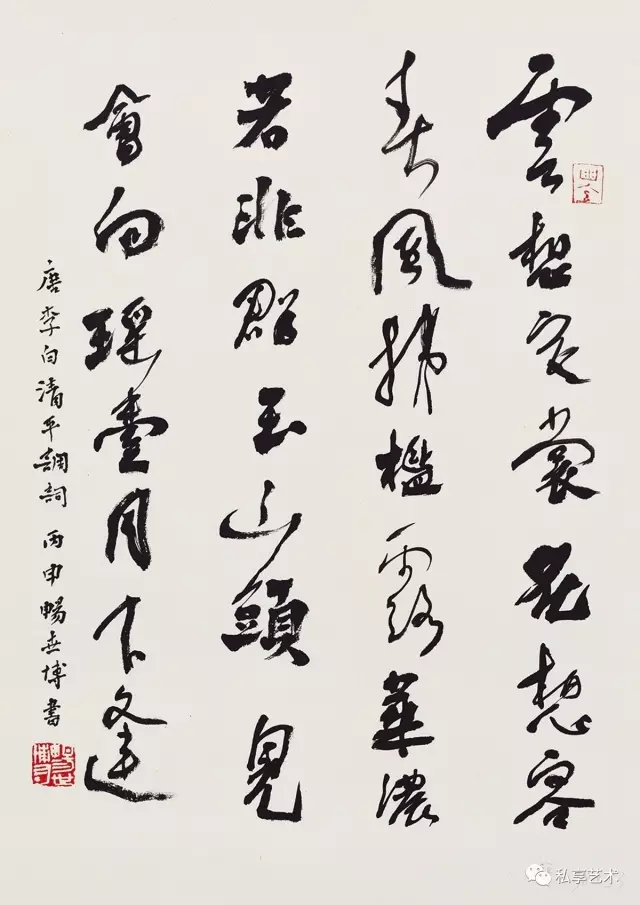 雲想衣裳花想容
春風拂檻露華濃
若非群玉山頭見
會向瑤臺月下逢
唐李白清平調詞 丙申暢世博書
私享艺术